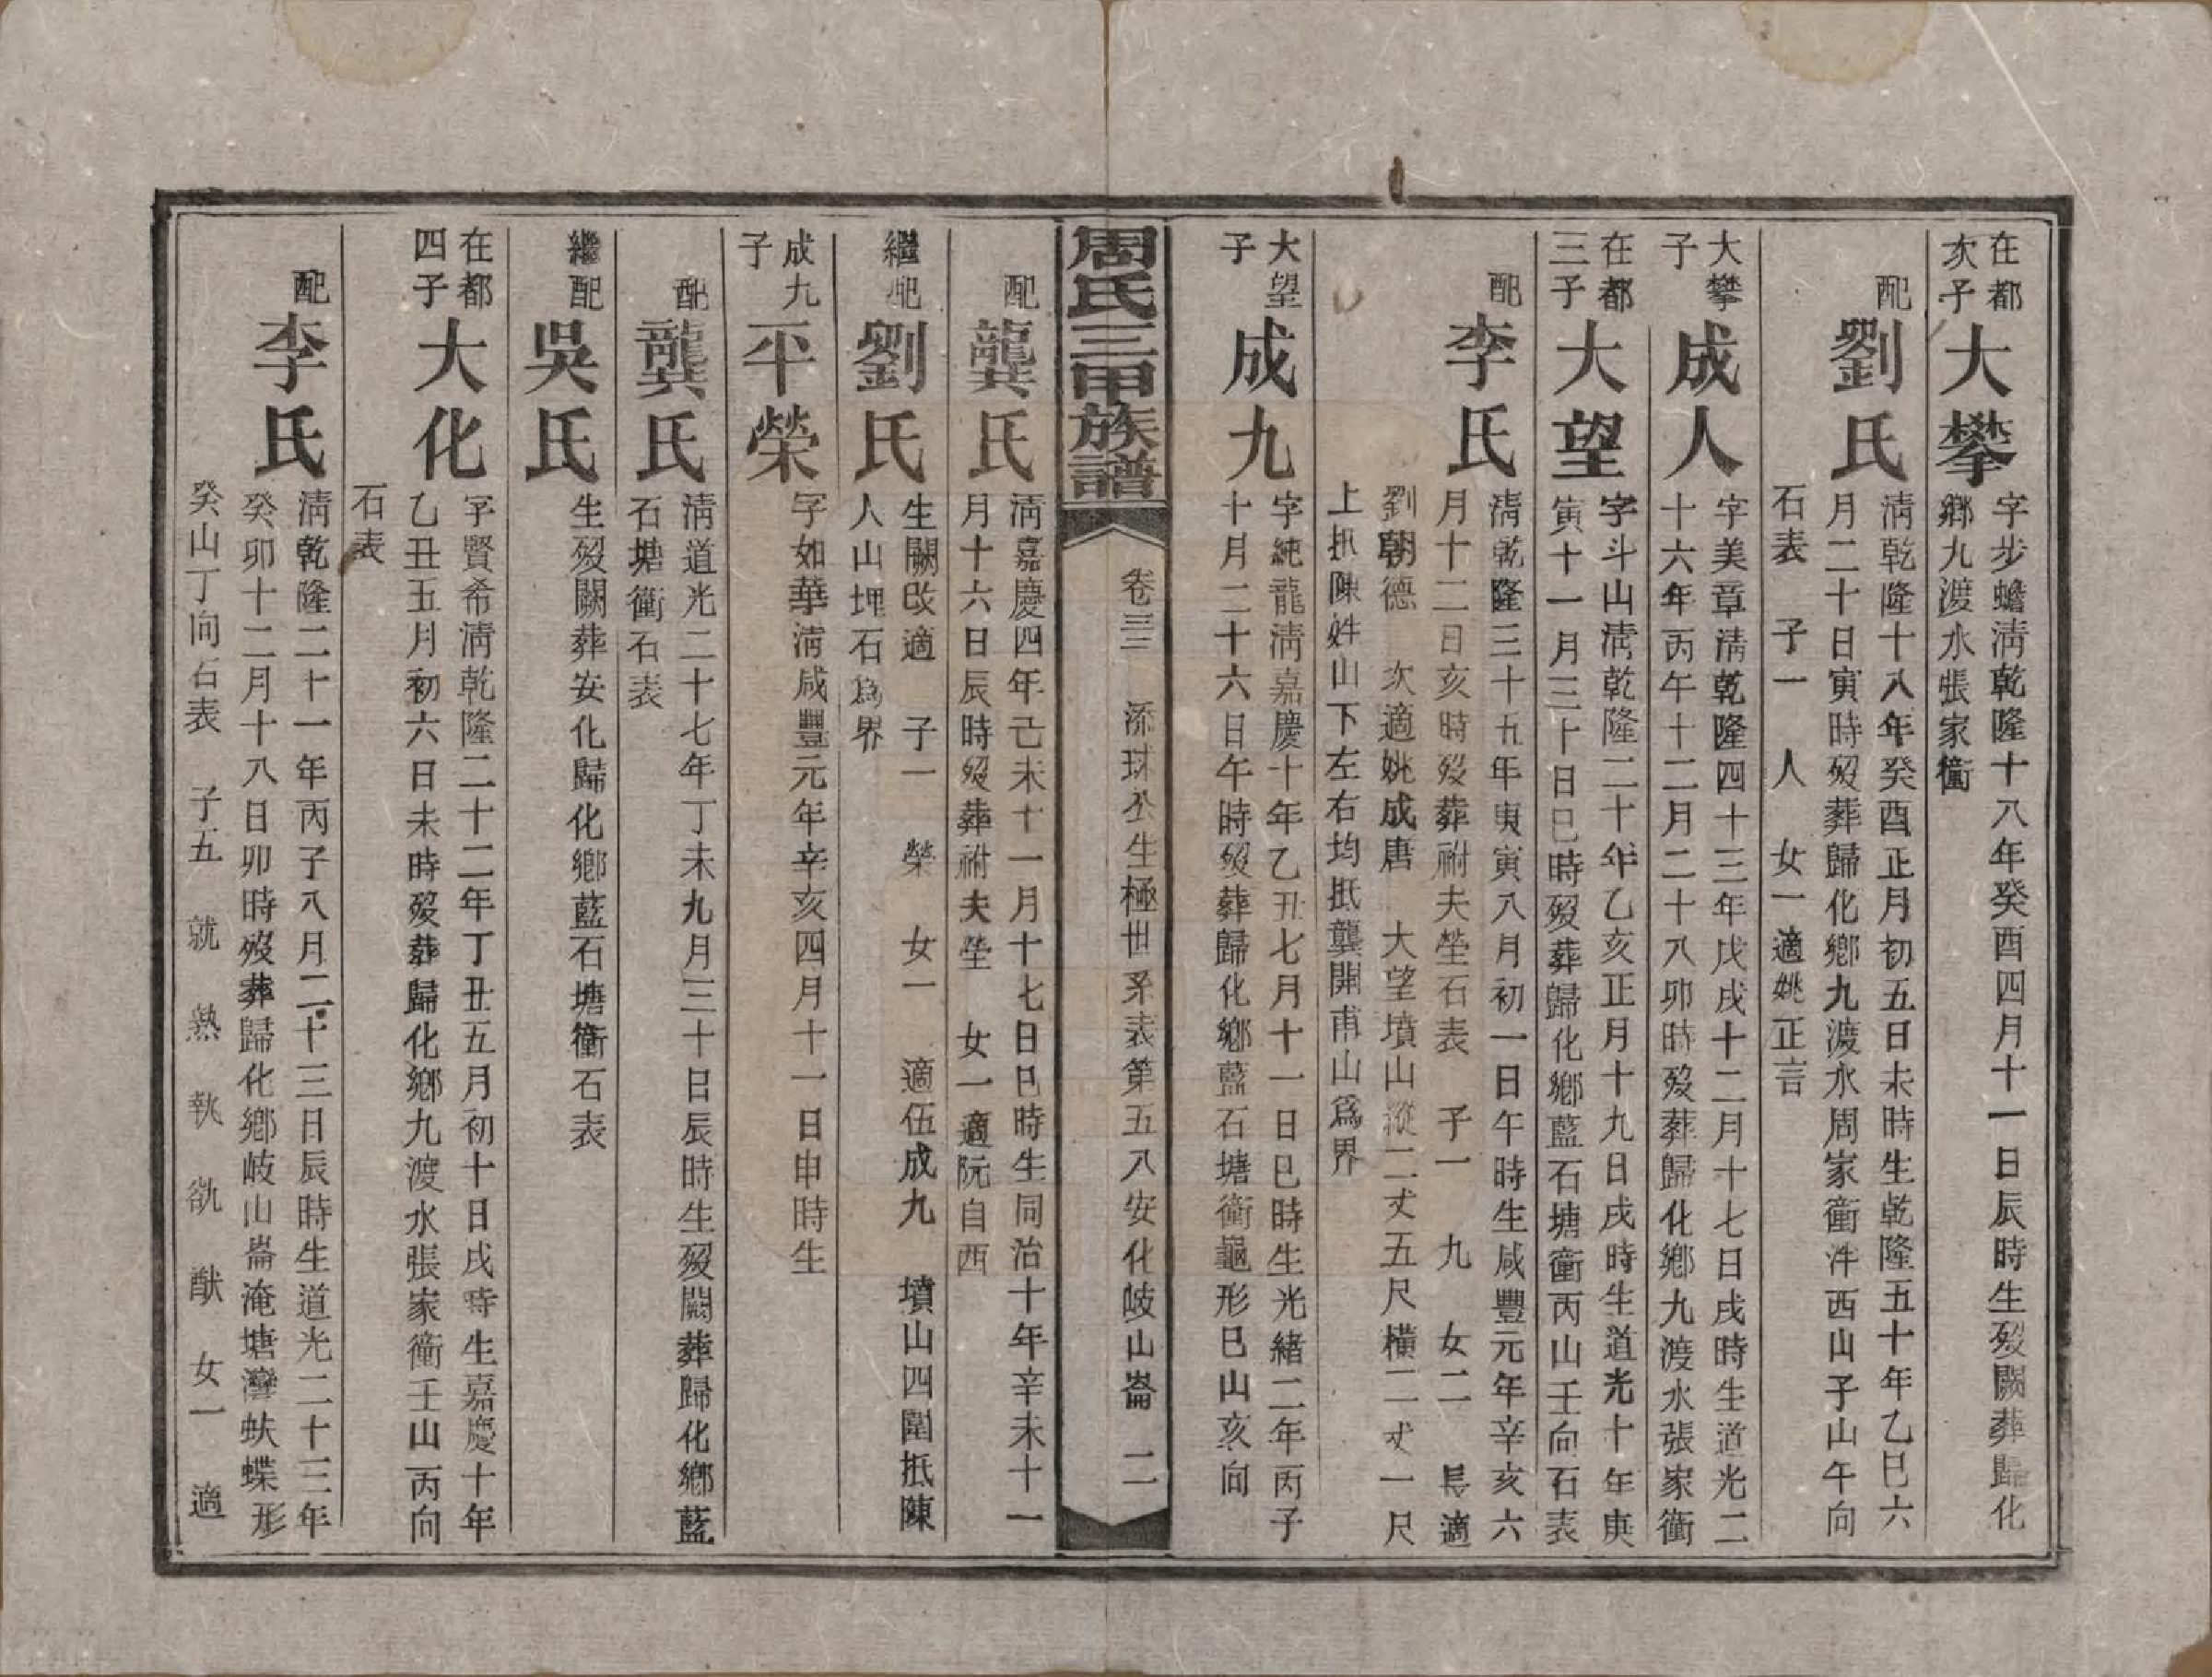 在都
次子
大攀
字步蟾淸乾隆十八年癸酉四月十一日辰時生歿闕葬歸化
鄉九渡水張家衝
配
劉氏
淸乾隆十八年癸酉正月初五日未時生乾隆五十年乙巳六
月二十日寅時歿葬歸化鄉九渡水周家衝泮西山子山午向
石表 子一 人 女一適姚正言
大攀
子
成人
字美章淸乾隆四十三年戊戌十二月十七日戌時生道光二
十六年丙午十二月二十八卯時歿葬歸化鄉九渡水張家衝
在都
三子
大望
字斗山淸乾隆二十年乙亥正月十九日戌時生道光十年庚
寅十一月三十日巳時歿葬歸化鄉藍石塘衝丙山壬向石表
配
李氏
淸乾隆三十五年庚寅八月初一日午時生咸豐元年辛亥六
月十二日亥時歿葬祔夫塋石表 子一 九 女二 長適
劉朝德 次適姚成唐 大望墳山縱二丈五尺橫二丈一尺
上扺陳姓山下左右均扺龔開甫山爲界
大望
子
成九
字純龍淸嘉慶十年乙丑七月十一日巳時生光緒二年丙子
十月二十六日午時歿葬歸化鄉藍石塘衝龜形巳山亥向
周氏三甲族譜
卷三三 添球公生極世系表第五八安化岐山崙 二
配
龔氏
淸嘉慶四年己未十一月十七日巳時生同治十年辛未十一
月十六日辰時歿葬祔夫塋 女一適阮自西
繼配
劉氏
生闕改適 子一 榮 女一 適伍成九 墳山四圍扺陳
人山埋石爲界
成九
子
平榮
字如華淸咸豐元年辛亥四月十一日申時生
配
龔氏
淸道光二十七年丁未九月三十日辰時生歿闕葬歸化鄉藍
石塘衝石表
繼配
吳氏
生歿闕葬安化歸化鄉藍石塘衝石表
在都
四子
大化
字賢希淸乾隆二十二年丁丑五月初十日戌時生嘉慶十年
乙丑五月初六日未時歿葬歸化鄉九渡水張家衝壬山丙向
石表
配
李氏
淸乾隆二十一年丙子八月二十三日辰時生道光二十三年
癸卯十二月十八日卯時歿葬歸化鄉岐山崙淹塘灣蚨蝶形
癸山丁向石表 子五 就 熟 執 欲 猷 女一 適